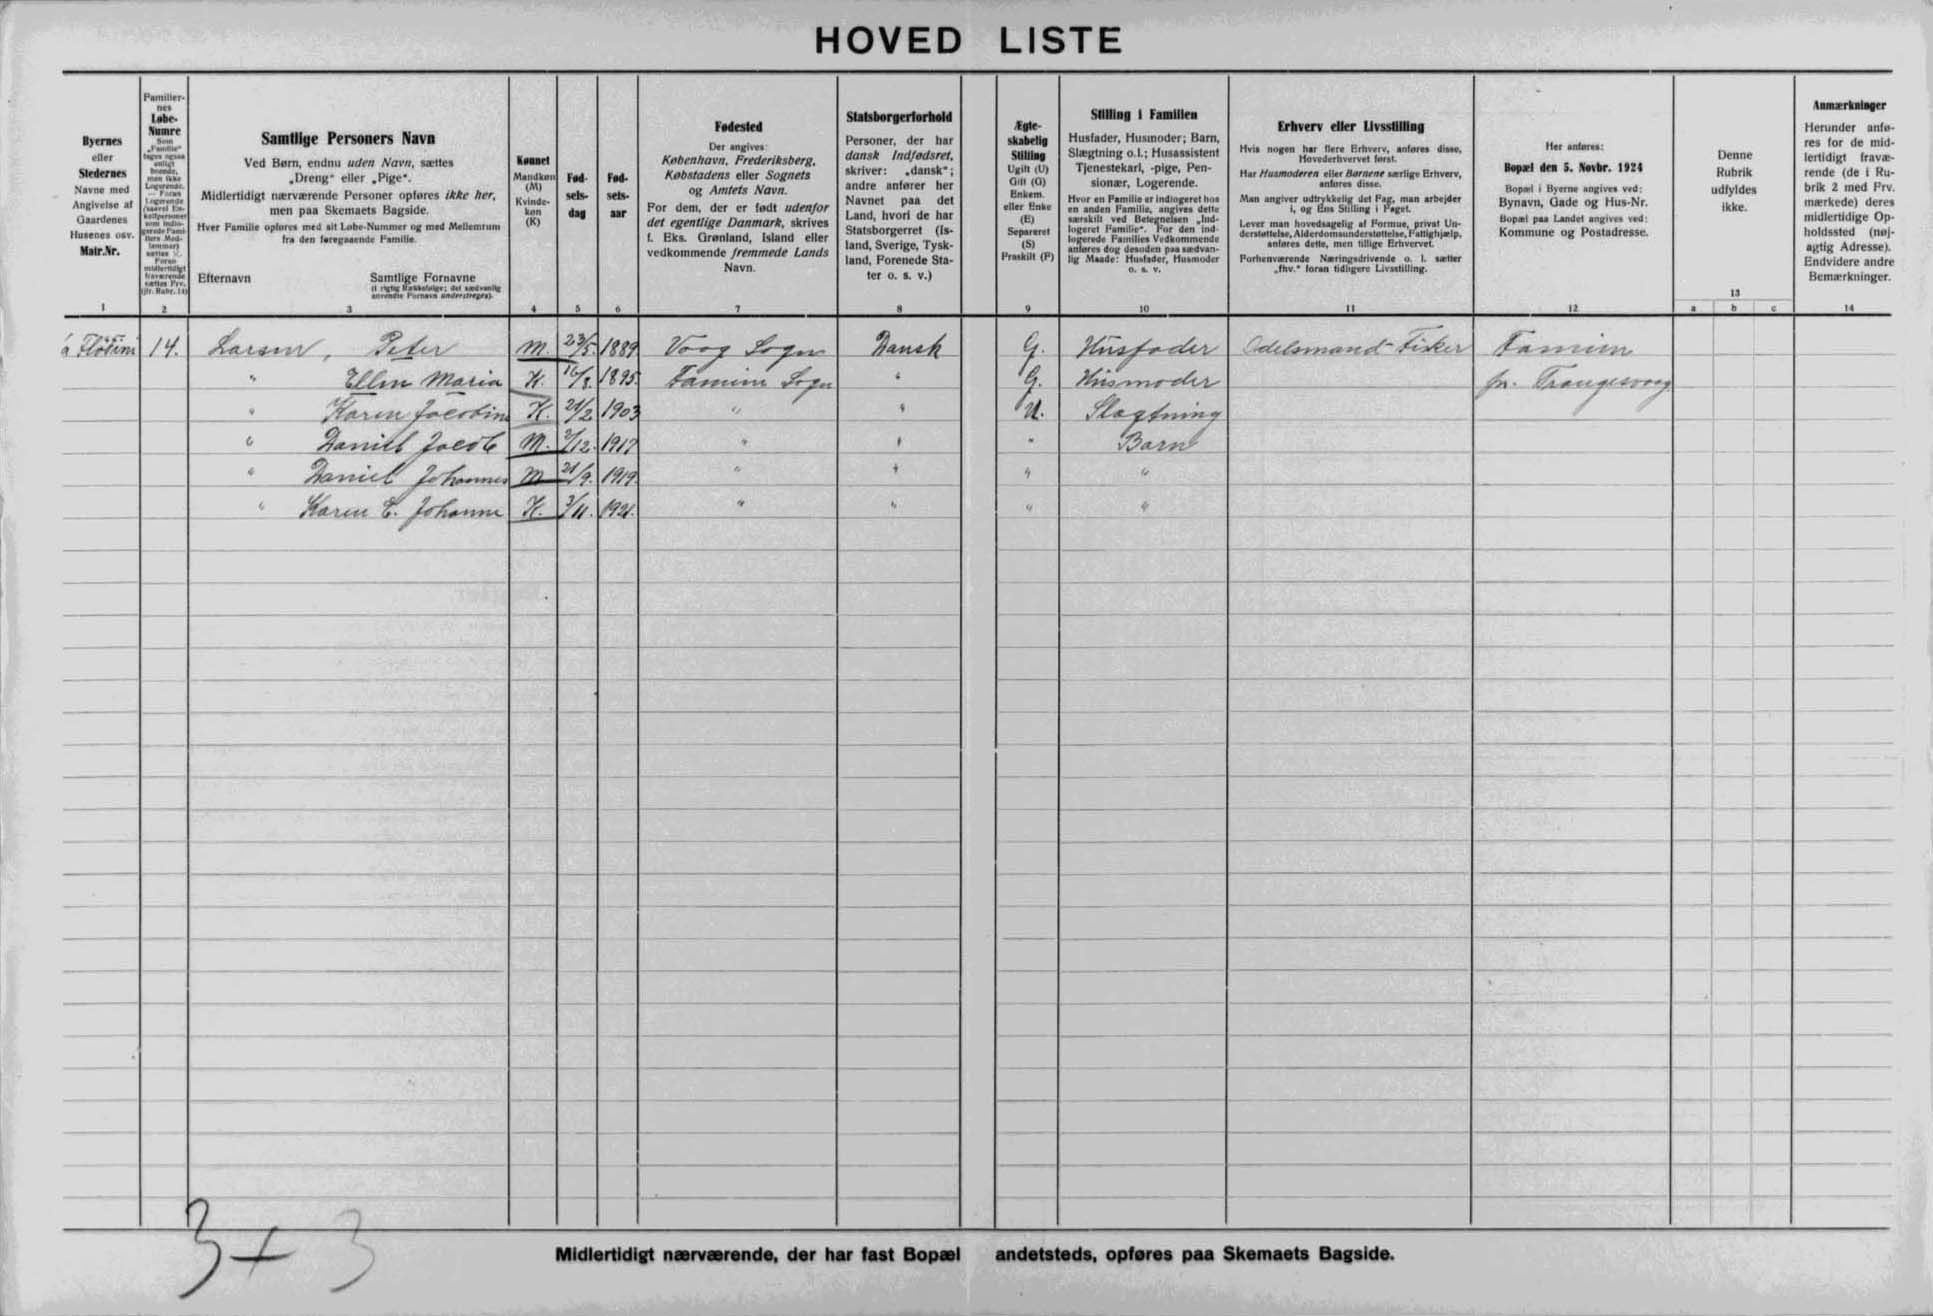 HOVED LISTE
Byernes
eller
Stedernes
Navne med
Angivelse af
Gaardenes
Husenes osv.
Matr.Nr.
1
Familier-
nes
Løbe-
Numre
2
Samtlige Personers Navn
Ved Børn, endnu uden Navn, sættes
„Dreng" eller „Pige".
Midlertidigt nærværende Personer opføres ikke her,
men paa Skemaets Bagside.
Hver Familie opføres med sit Løbe-Nummer og med Mellemrum
fra den foregaaende Familie.
Efternavn Samtlige Fornavne
(i rigtig Rækkefølge; det sædvanlig
anvendte Fornavn understreges).
3
Kønnet
Mandkøn
(M)
Kvinde-
køn
(K)
4
Fød-
sels-
dag
5
Fød-
sels-
aar
6
Fødested
Der angives:
København, Frederiksberg,
Købstadens eller Sognets
og Amtets Navn.
For dem, der er født udenfor
det egentlige Danmark, skrives
f. Eks. Grønland, Island eller
vedkommende fremmede Lands
Navn.
7
Statsborgerforhold
Personer, der har
dansk Indfødsret,
skriver: „dansk";
andre anfører her
Navnet paa det
Land, hvori de har
Statsborgerret (Is-
land, Sverige, Tysk-
land, Forenede Sta-
ter o. s. v.)
8
Ægte-
skabelig
Stilling
Ugift (U)
Gift (G)
Enkem.
eller Enke
(E)
Separeret
(S)
Fraskilt (F)
9
Stilling i Familien
Husfader, Husmoder; Barn,
Slægtning o.l.; Husassistent
Tjenestekarl, -pige, Pen-
sionær, Logerende.
Hvor en Familie er indlogeret hos
en anden Familie, angives dette
særskilt ved Betegnelsen „Ind-
logeret Familie". For den ind-
logerede Families Vedkommende
anføres dog desuden paa sædvan-
lig Maade: Husfader, Husmoder
o. s. v.
10
Erhverv eller Livsstilling
Hvis nogen har flere Erhverv, anføres disse,
Hovederhvervet først.
Har Husmoderen eller Børnene særlige Erhverv,
anføres disse.
Man angiver udtrykkelig det Fag, man arbejder
i, og Ens Stilling i Faget.
Lever man hovedsagelig af Formue, privat Un-
derstøttelse, Alderdomsunderstøttelse, Fattighjælp,
anføres dette, men tillige Erhvervet.
Forhenværende Næringsdrivende o. l. sætter
„fhv." foran tidligere Livsstilling.
11
Her anføres:
Bopæl den 5. Novbr. 1924
Bopæl i Byerne angives ved:
Bynavn, Gade og Hus-Nr.
Bopæl paa Landet angives ved:
Kommune og Postadresse.
12
Denne
Rubrik
udfyldes
ikke.
13
a b c
Anmærkninger
Herunder anfø-
res for de mid-
lertidigt fravæ-
rende (de i Ru-
brik 2 med Frv.
mærkede) deres
midlertidige Op-
holdssted (nøj-
agtig Adresse).
Endvidere andre
Bemærkninger.
14
á Fløtini 14. Larsen, Peter M. 23/5. 1889 Vaag Sogn Dansk G. Husfader Odelsmand-Fisker Famien
" Ellen Maria K. 16/8. 1895. Famien Sogn " G. Husmoder pr. Trangesvaag
" Karen Jacobine K. 21/2. 1903 " " U. Slægtning
" Daniel Jacob M. 2/12. 1917 " " " Barn
" Daniel Johannes M 21/9. 1919. " " " "
" Karen E. Johanne K. 3/11. 1921. " " " "
3 + 3
Midlertidigt nærværende, der har fast Bopæl andetsteds, opføres paa Skemaets Bagside.